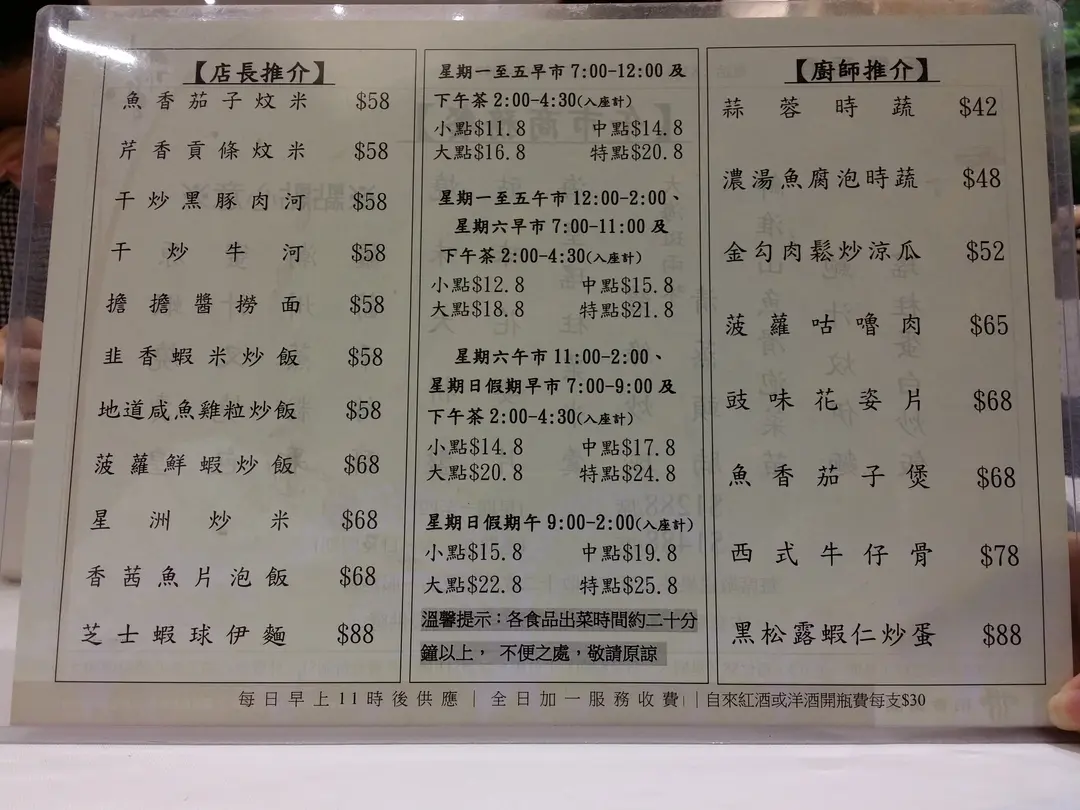 【店長推介】
魚香茄子炆米 $58
芹香貢條炆米 $58
干炒黑豚肉河 $58
干炒牛河 $58
擔擔醬撈面 $58
韭香蝦米炒飯 $58
地道咸魚雞粒炒飯 $58
菠蘿鮮蝦炒飯 $68
星洲炒米 $68
香茜魚片泡飯 $68
芝士蝦球伊麵 $88
星期一至五早市7:00-12:00及
下午茶2:00-4:30(入座計)
小點$11.8 中點$14.8
大點$16.8 特點$20.8
星期一至五午市12:00-2:00、
星期六早市7:00-11:00及
下午茶2:00-4:30(入座計)
小點$12.8 中點$15.8
大點$18.8 特點$21.8
星期六午市11:00-2:00、
星期日假期早市7:00-9:00及
下午茶2:00-4:30(入座計)
小點$14.8 中點$17.8
大點$20.8 特點$24.8
星期日假期午9:00-2:00(入座計)
小點$15.8 中點$19.8
大點$22.8 特點$25.8
溫馨提示：各食品出菜時間約二十分
鐘以上， 不便之處，敬請原諒
【廚師推介】
蒜蓉時蔬 $42
濃湯魚腐泡時蔬 $48
金勾肉鬆炒涼瓜 $52
菠蘿咕嚕肉 $65
豉味花姿片 $68
魚香茄子煲 $68
西式牛仔骨 $78
黑松露蝦仁炒蛋 $88
每日早上11時後供應 | 全日加一服務收費 | | 自來紅酒或洋酒開瓶費每支$30